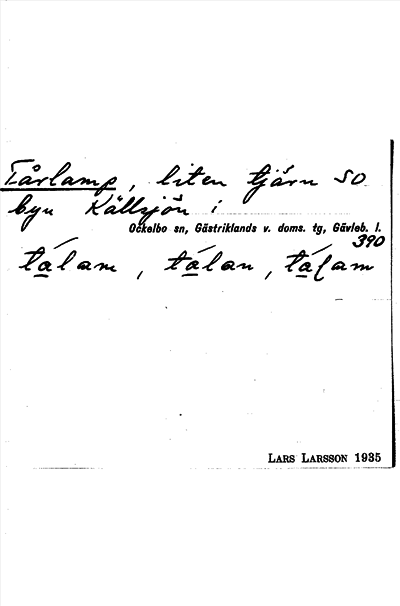 Tårlamp, liten tjärn SO
byn Källsjön i
Ockelbo sn, Gästriklands v. doms. tg, Gävleb. l.
390
tálam, tálan, táɭam
LARS LARSSON 1935